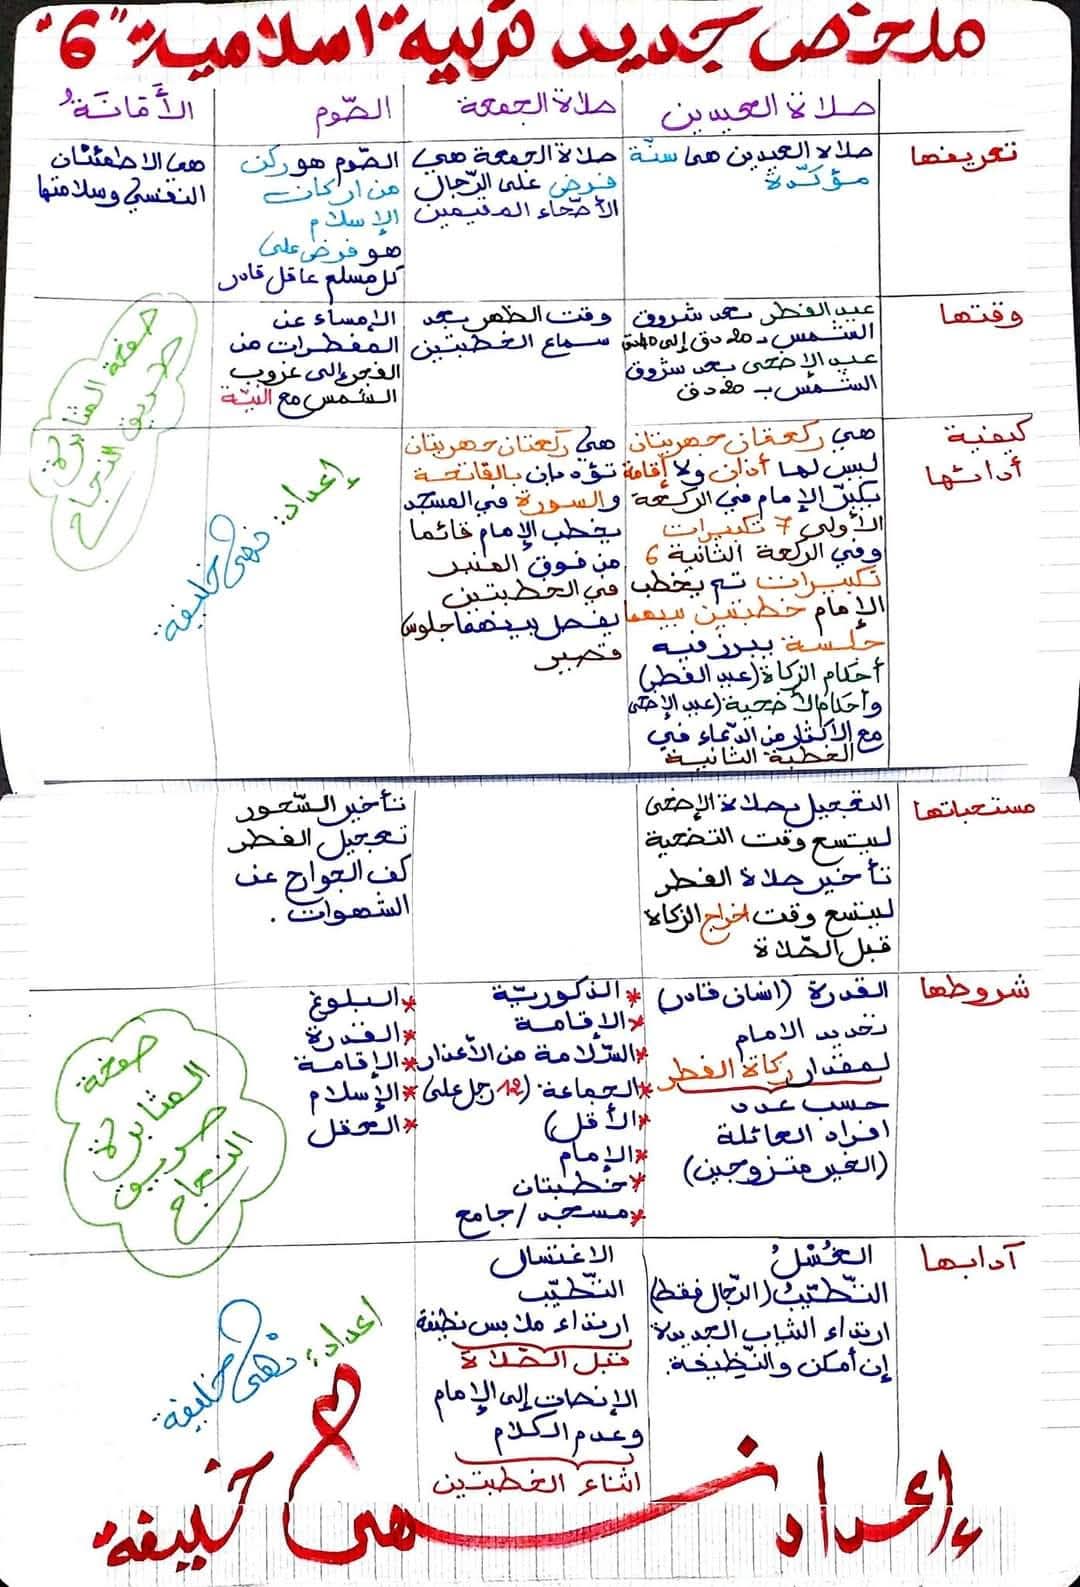 ملخص جديد تربية اسلامية "6"
صلاة العيدين
صلاة الجمعة
الصّوم
الأَمَانَةُ
تعريفها
صلاة العيدين هي سنّة
مؤكّدة
صلاة الجمعة هي
فرض على الرّجال
الأصّحاء المقيمين
الصّوم هو ركن
من اركان
الإسلام
هو فرض على
كل مسلم عاقل قادر
هي الاطمئنان
النفسي وسلامتها
وقتها
عيد الفطر بعد شروق
الشمس بـ 20 دق إلى 40 دق
عيد الاضحى بعد شروق
الشمس بـ 20 دق
وقت الظهر بعد
سماع الخطبتين
الإمساء عن
المفطرات من
الفجر إلى غروب
الشمس مع النيّة
صفحة المثابرة
طريق النجاح
كيفية
أدائها
هي ركعتان جهريتان
ليس لها أذان ولا إقامة
يكبّر الإمام في الركعة
الأولى 7 تكبيرات
وفي الركعة الثانية 6
تكبيرات ثم يخطب
الإمام خطبتين بينهما
جلسة يبرز فيه
أحكام الزكاة (عيد الفطر)
وأحكام الأضحية (عيد الإضحى
مع الاكثار من الدّعاء في
الخطبة الثانية
هي ركعتان جهريتان
تؤديان بالفاتحة
والسورة في المسجد
يخطب الإمام قائما
من فوق المنبر
في الخطبتين
يفصل بينهما جلوس
قصير
إعداد: نهى خليفة
مستحباتها
التعجيل بصلاة الإضحى
ليتسع وقت التضحية
تأخير صلاة الفطر
ليتسع وقت اخراج الزكاة
قبل الصّلاة
تأخير السّحور
تعجيل الفطر
كف الجوارح عن
الشهوات .
شروطها
القدرة (انسان قادر)
تحديد الامام
لمقدار زكاة الفطر
حسب عدد
افراد العائلة
(الغير متزوجين)
*الذكوريّة
*الإقامة
*السّلامة من الأعذار
*الجماعة (12 رجل على
*الأقل)
*الإمام
*خطبتان
*مسجد / جامع
*البلوغ
*القدرة
*الإقامة
*الإسلام
*العقل
صفحة
المثابرة
طريق
النجاح
آدابها
الغُسْلُ
التّطيّبُ (الرّجال فقط)
ارتداء الثياب الجديدة
إن أمكن والنّظيفة.
الاغتسال
التّطيّب
ارتداء ملابس نظيفة
قبل الصّلاة
الإنصات إلى الإمام
وعدم الكلام
اثناء الخطبتين
اعداد: نهى خليفة
إعداد نهى خليفة